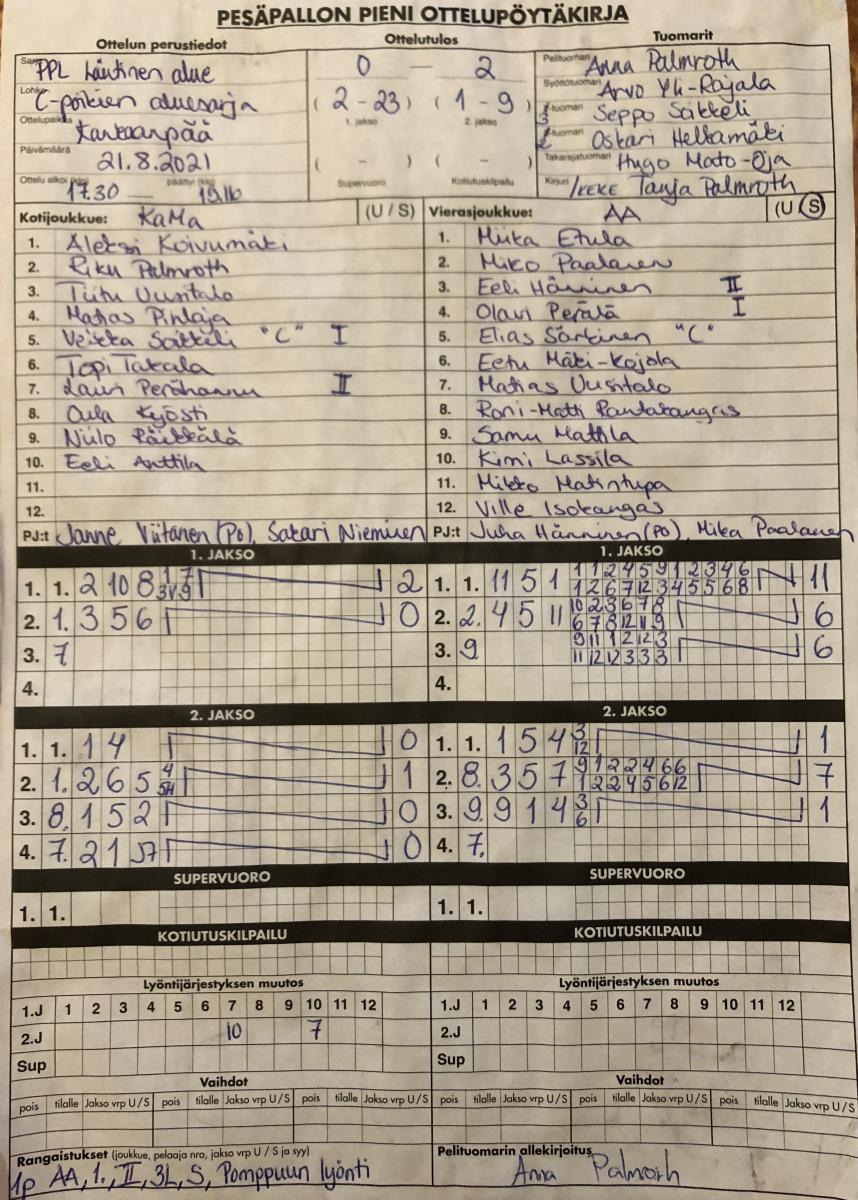 PESÄPALLON PIENI OTTELUPÖYTÄKIRJA
Ottelun perustiedot
Ottelutulos
Tuomarit
Sarja PPL Läntinen alue
Lohko C-poikien aluesarja
Ottelupaikka Kankaanpää
Päivämäärä 21.8.2021
Ottelu alkoi (klo) 17.30 — päättyi (klo) 19.16
0 — 2
(2 - 23) (1 - 9)
1. jakso 2. jakso
( - ) ( - )
Supervuoro Kotiutuskilpailu
Pelituomari Anna Palmroth
Syöttötuomari Arvo Yli-Rajala
3 tuomari Seppo Saikkeli
2 tuomari Oskari Heltamäki
Takarajatuomari Hugo Mato-Oja
Kirjuri /KEKE Tanja Palmroth
Kotijoukkue: KaMa (U / S)
1. Aleksi Koivumäki
2. Riku Palmroth
3. Tiitu Uusitalo
4. Matias Pihlaja
5. Veikka Saikkeli "C" I
6. Topi Takala
7. Lauri Perähannu II
8. Oula Kyösti
9. Niilo Päikkälä
10. Eeli Anttila
11.
12.
PJ:t Janne Viitanen (PO), Sakari Nieminen
Vierasjoukkue: AA (U / S)
1. Miika Etula
2. Miko Paalanen
3. Eeli Hänninen II
4. Olavi Perälä I
5. Elias Särkinen "C"
6. Eetu Mäki-Kojola
7. Matias Uusitalo
8. Roni-Matti Pantakangas
9. Samu Mattila
10. Kimi Lassila
11. Mikko Matintupa
12. Ville Isokangas
PJ:t Juha Hänninen (PO), Mika Paalanen
1. JAKSO
1. 1. 2 10 8 1 7 2
3V 9
2. 1. 3 5 6 0
3. 7
4.
1. JAKSO
1. 1. 11 5 1 1 1 2 4 5 9 1 2 3 4 6 11
1 2 6 7 12 3 4 5 5 6 8
2. 2. 4 5 11 10 2 3 6 7 8 6
6 7 8 12 11 9
3. 9 9 11 1 2 12 3 6
11 12 12 3 3 3
4.
2. JAKSO
1. 1. 1 4 0
2. 1. 2 6 5 4 1
5H
3. 8. 1 5 2 0
4. 7. 2 1 57 0
2. JAKSO
1. 1. 1 5 4 3 1
12
2. 8. 3 5 7 9 1 2 2 4 6 6 7
1 2 2 4 5 6 12
3. 9. 9 1 4 3 1
6
4. 7.
SUPERVUORO
1. 1.
SUPERVUORO
1. 1.
KOTIUTUSKILPAILU
KOTIUTUSKILPAILU
Lyöntijärjestyksen muutos
1.J 1 2 3 4 5 6 7 8 9 10 11 12
2.J 10 7
Sup
Lyöntijärjestyksen muutos
1.J 1 2 3 4 5 6 7 8 9 10 11 12
2.J
Sup
Vaihdot
pois tilalle Jakso vrp U/S pois tilalle Jakso vrp U/S pois tilalle Jakso vrp U/S
Vaihdot
pois tilalle Jakso vrp U/S pois tilalle Jakso vrp U/S pois tilalle Jakso vrp U/S
Rangaistukset (joukkue, pelaaja nro, jakso vrp U / S ja syy)
1p AA, 1., II, 3L, S, Pomppuun lyönti
Pelituomarin allekirjoitus
Anna Palmroth